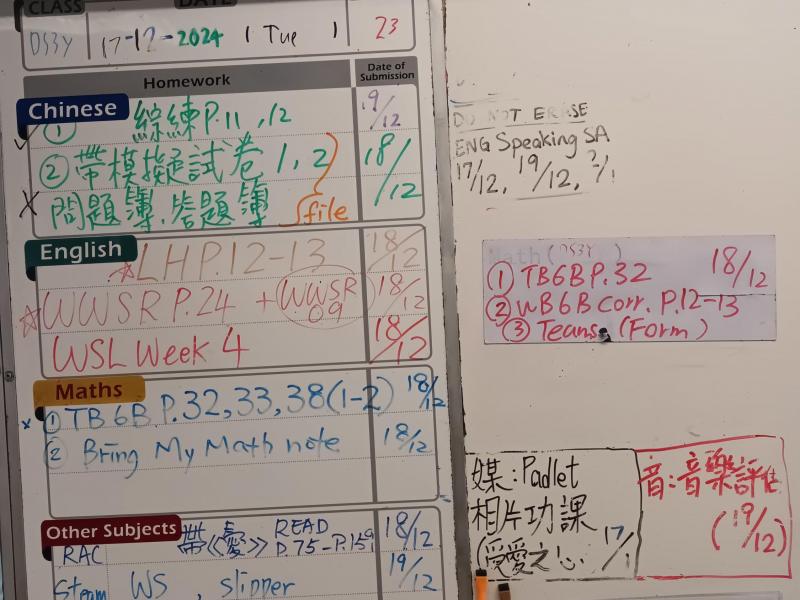 CLASS DATE
DS3Y 17-12-2024 ( Tue ) 23
Homework Date of Submission
Chinese
① 綜練P.11,12 19/12
② 帶模擬試卷 1, 2 18/12
問題簿.答題簿 file
English
☆LHP.12-13 18/12
☆WWSR P.24 + WWSR 09 18/12
WSL Week 4 18/12
Maths
① TB6B P.32,33,38(1-2) 18/12
② Bring My Math note 18/12
Other Subjects
RAC 帶《憂》 READ P.75-P.159 18/12
Steam WS , slipper 19/12
DO NOT ERASE
ENG Speaking SA
17/12, 19/12, ?/1
Math (DS3Y)
① TB6B P.32 18/12
② WB6B Corr. P.12-13
③ Teams (Form)
媒:Padlet
相片功課
(受愛之心 17/1
音:音樂評估
(19/12)